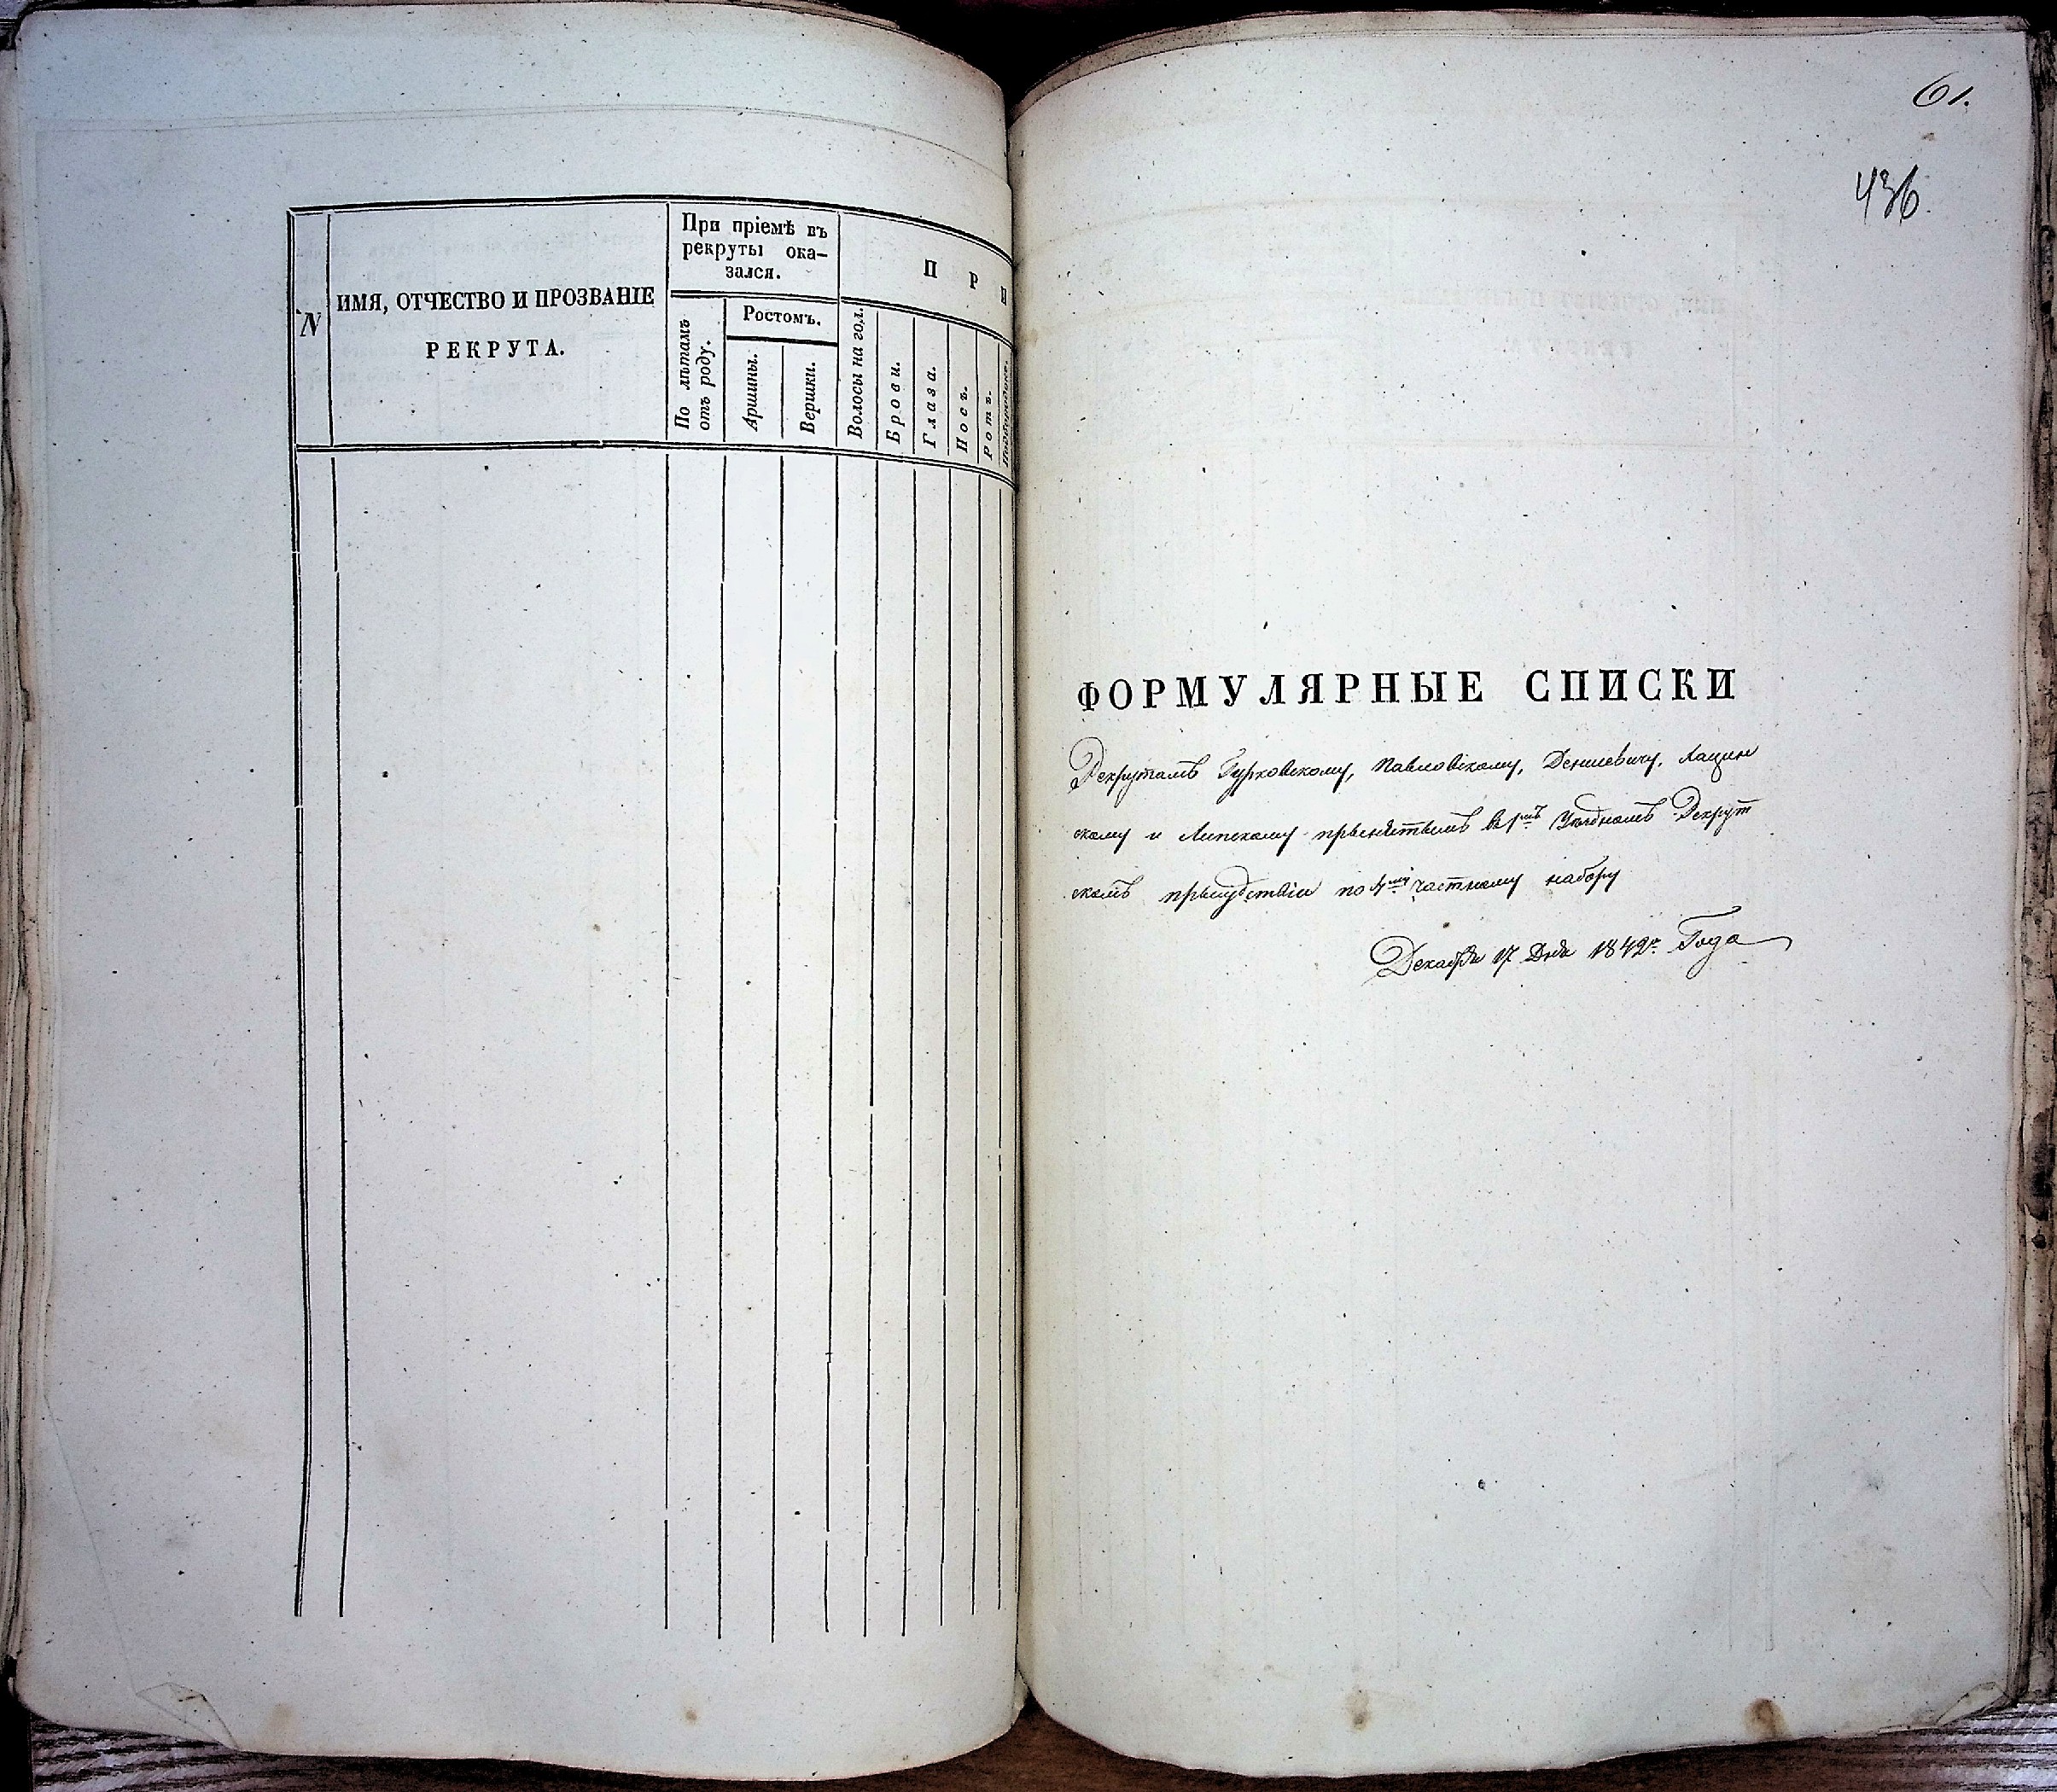 N
ИМЯ, ОТЧЕСТВО И ПРОЗВАНІЕ
РЕКРУТА.
При пріемѣ въ
рекруты ока-
зался.
По лѣтамъ
отъ роду.
Ростомъ.
Аршины.
Вершки.
П Р И
Волосы на гол.
Брови.
Глаза.
Носъ.
Ротъ.
61.
436
ФОРМУЛЯРНЫЕ СПИСКИ
Рекрутамъ Гурковскому, Павловскому, Денисевичу, Лацин
скому и Липскому принятымъ въ 1мъ Уѣздномъ Рекрут
скомъ присудствіи по 4му частному набору
Декабря 17 Дня 1842го Года